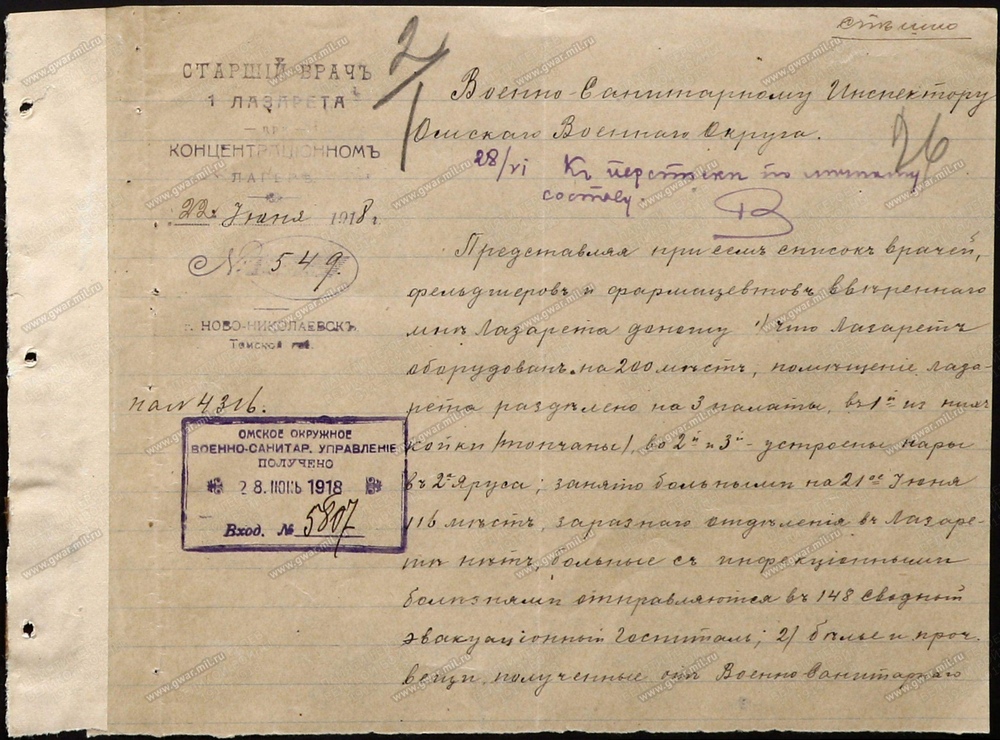 2/1
26
СТАРШІЙ ВРАЧЪ
1 ЛАЗАРЕТА
при
КОНЦЕНТРАЦІОННОМЪ
ЛАГЕРѢ
22 Іюня 1918 г.
№ 549.
г. НОВО-НИКОЛАЕВСКЪ
Томской губ.
на № 4316.
ОМСКОЕ ОКРУЖНОЕ
ВОЕННО-САНИТАР. УПРАВЛЕНІЕ
ПОЛУЧЕНО
28. ІЮНЬ 1918
Вход. № 5807
Военно-Санитарному Инспектору
Омскаго Военнаго Округа.
28/VI Къ переписки по личному
составу.
Представляя при семъ списокъ врачей,
фельдшеровъ и фармацевтовъ ввѣреннаго
мнѣ Лазарета доношу 1/ что Лазаретъ
оборудованъ на 200 мѣстъ, помѣщеніе лаза-
рета раздѣлено на 3 палаты, въ 1й из нихъ
койки /топчаны/, во 2й и 3й - устроены нары
въ 2 яруса; занято больными на 21ое Іюня
116 мѣстъ, заразнаго отдѣленія въ Лазаре-
тѣ нѣтъ, больные съ инфекціонными
болѣзнями отправляются въ 148 сводный
эвакуаціонный Госпиталь; 2/ бѣлье и проч.
вещи, полученные отъ Военно Санитарнаго
www.gwar.mil.ru